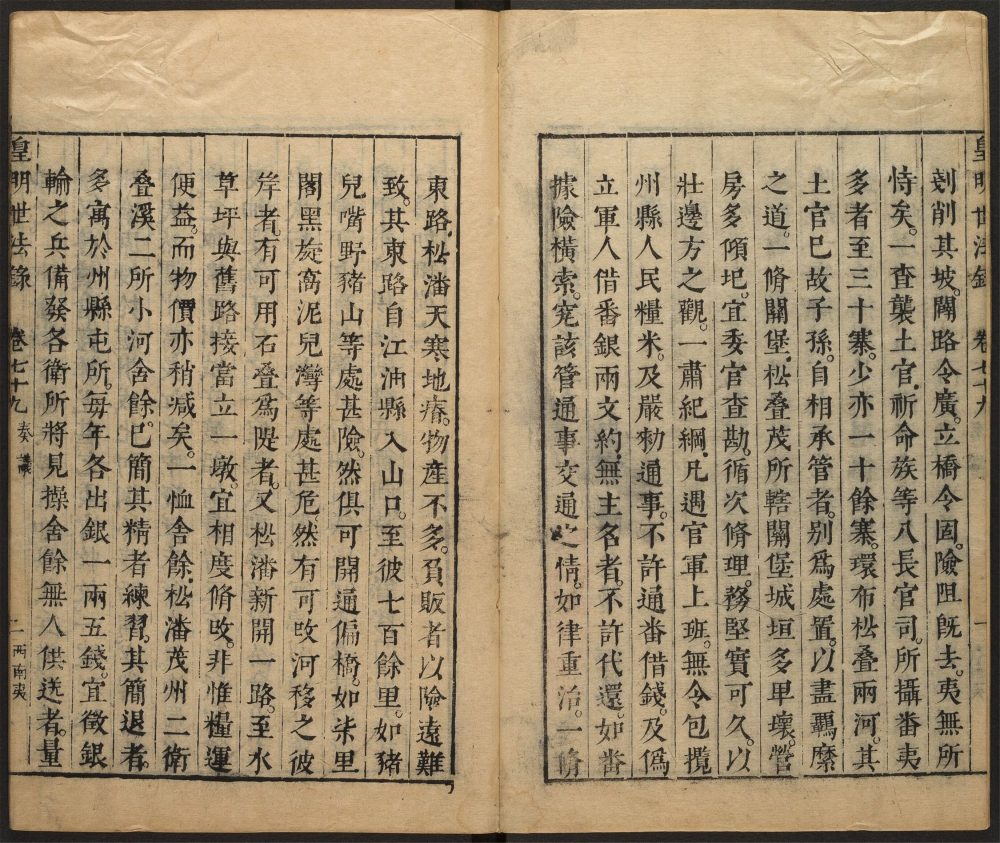 皇明世法錄 卷七十九 一
剗削其坡。闢路令廣。立橋令固。險阻既去。夷無所
恃矣。一查襲土官。祈命族等八長官司。所攝番夷
多者至三十寨。少亦一十餘寨。環布松叠兩河。其
土官巳故子孫。自相承管者。别爲處置。以盡羈縻
之道。一脩關堡。松叠茂所轄關堡城垣多卑壞。營
房多傾圯。宜委官查勘。循次脩理。務堅實可久。以
壯邊方之觀。一肅紀綱。凡遇官軍上班。無令包攬
州縣人民糧米。及嚴勑通事。不許通番借錢。及僞
立軍人借番銀兩文約。無主名者。不許代還。如番
據險橫索。究該管通事交通之情。如律重治。一脩
東路。松潘天寒地瘠。物産不多。負販者以險遠難
致。其東路自江油縣入山口。至彼七百餘里。如豬
兒嘴野豬山等處甚險。然俱可開通偏橋。如柒里
閣黑旋窩泥兒灣等處甚危。然有可改河移之彼
岸者。有可用石叠爲隄者。又松潘新開一路。至水
草坪與舊路接。當立一墩。宜相度脩改。非惟糧運
便益。而物價亦稍减矣。一恤舍餘。松潘茂州二衛
叠溪二所小河舍餘。巳簡其精者練習。其簡退者。
多寓於州縣屯所。每年各出銀一兩五錢。宜徵銀
輸之兵備發各衛所將見操舍餘無人供送者。量
皇明世法錄 卷七十九 奏議 二 西南夷